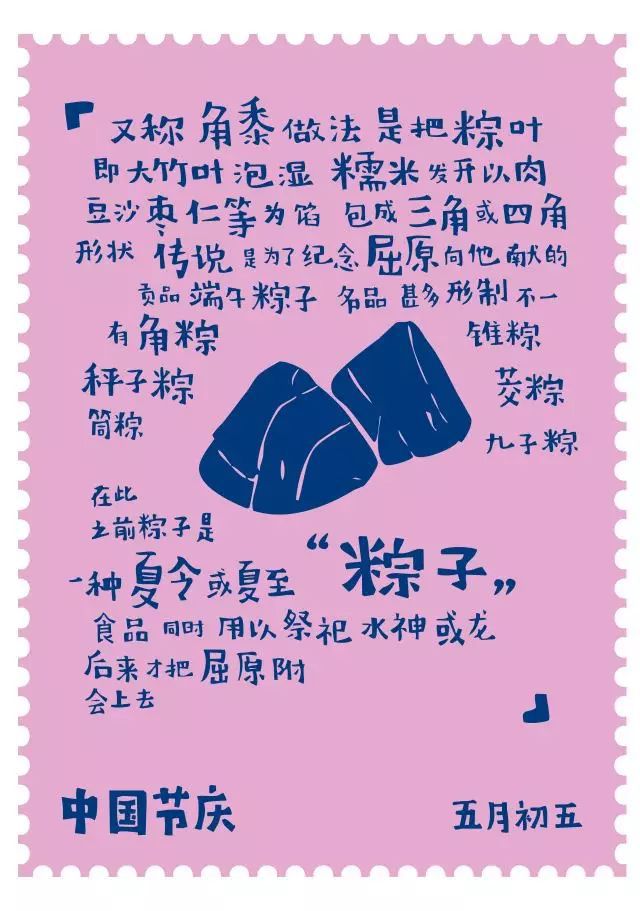 『
又称 角黍 做法 是把粽叶
即大竹叶泡湿 糯米发开以肉
豆沙枣仁等为馅 包成三角或四角
形状 传说是为了纪念屈原向他献的
贡品端午粽子 名品甚多形制不一
有角粽 锥粽
秤子粽 茭粽
筒粽 九子粽
在此
之前粽子是
一种夏令或夏至 “粽子”
食品同时用以祭祀水神或龙
后来才把屈原附
会上去
』
中国节庆 五月初五